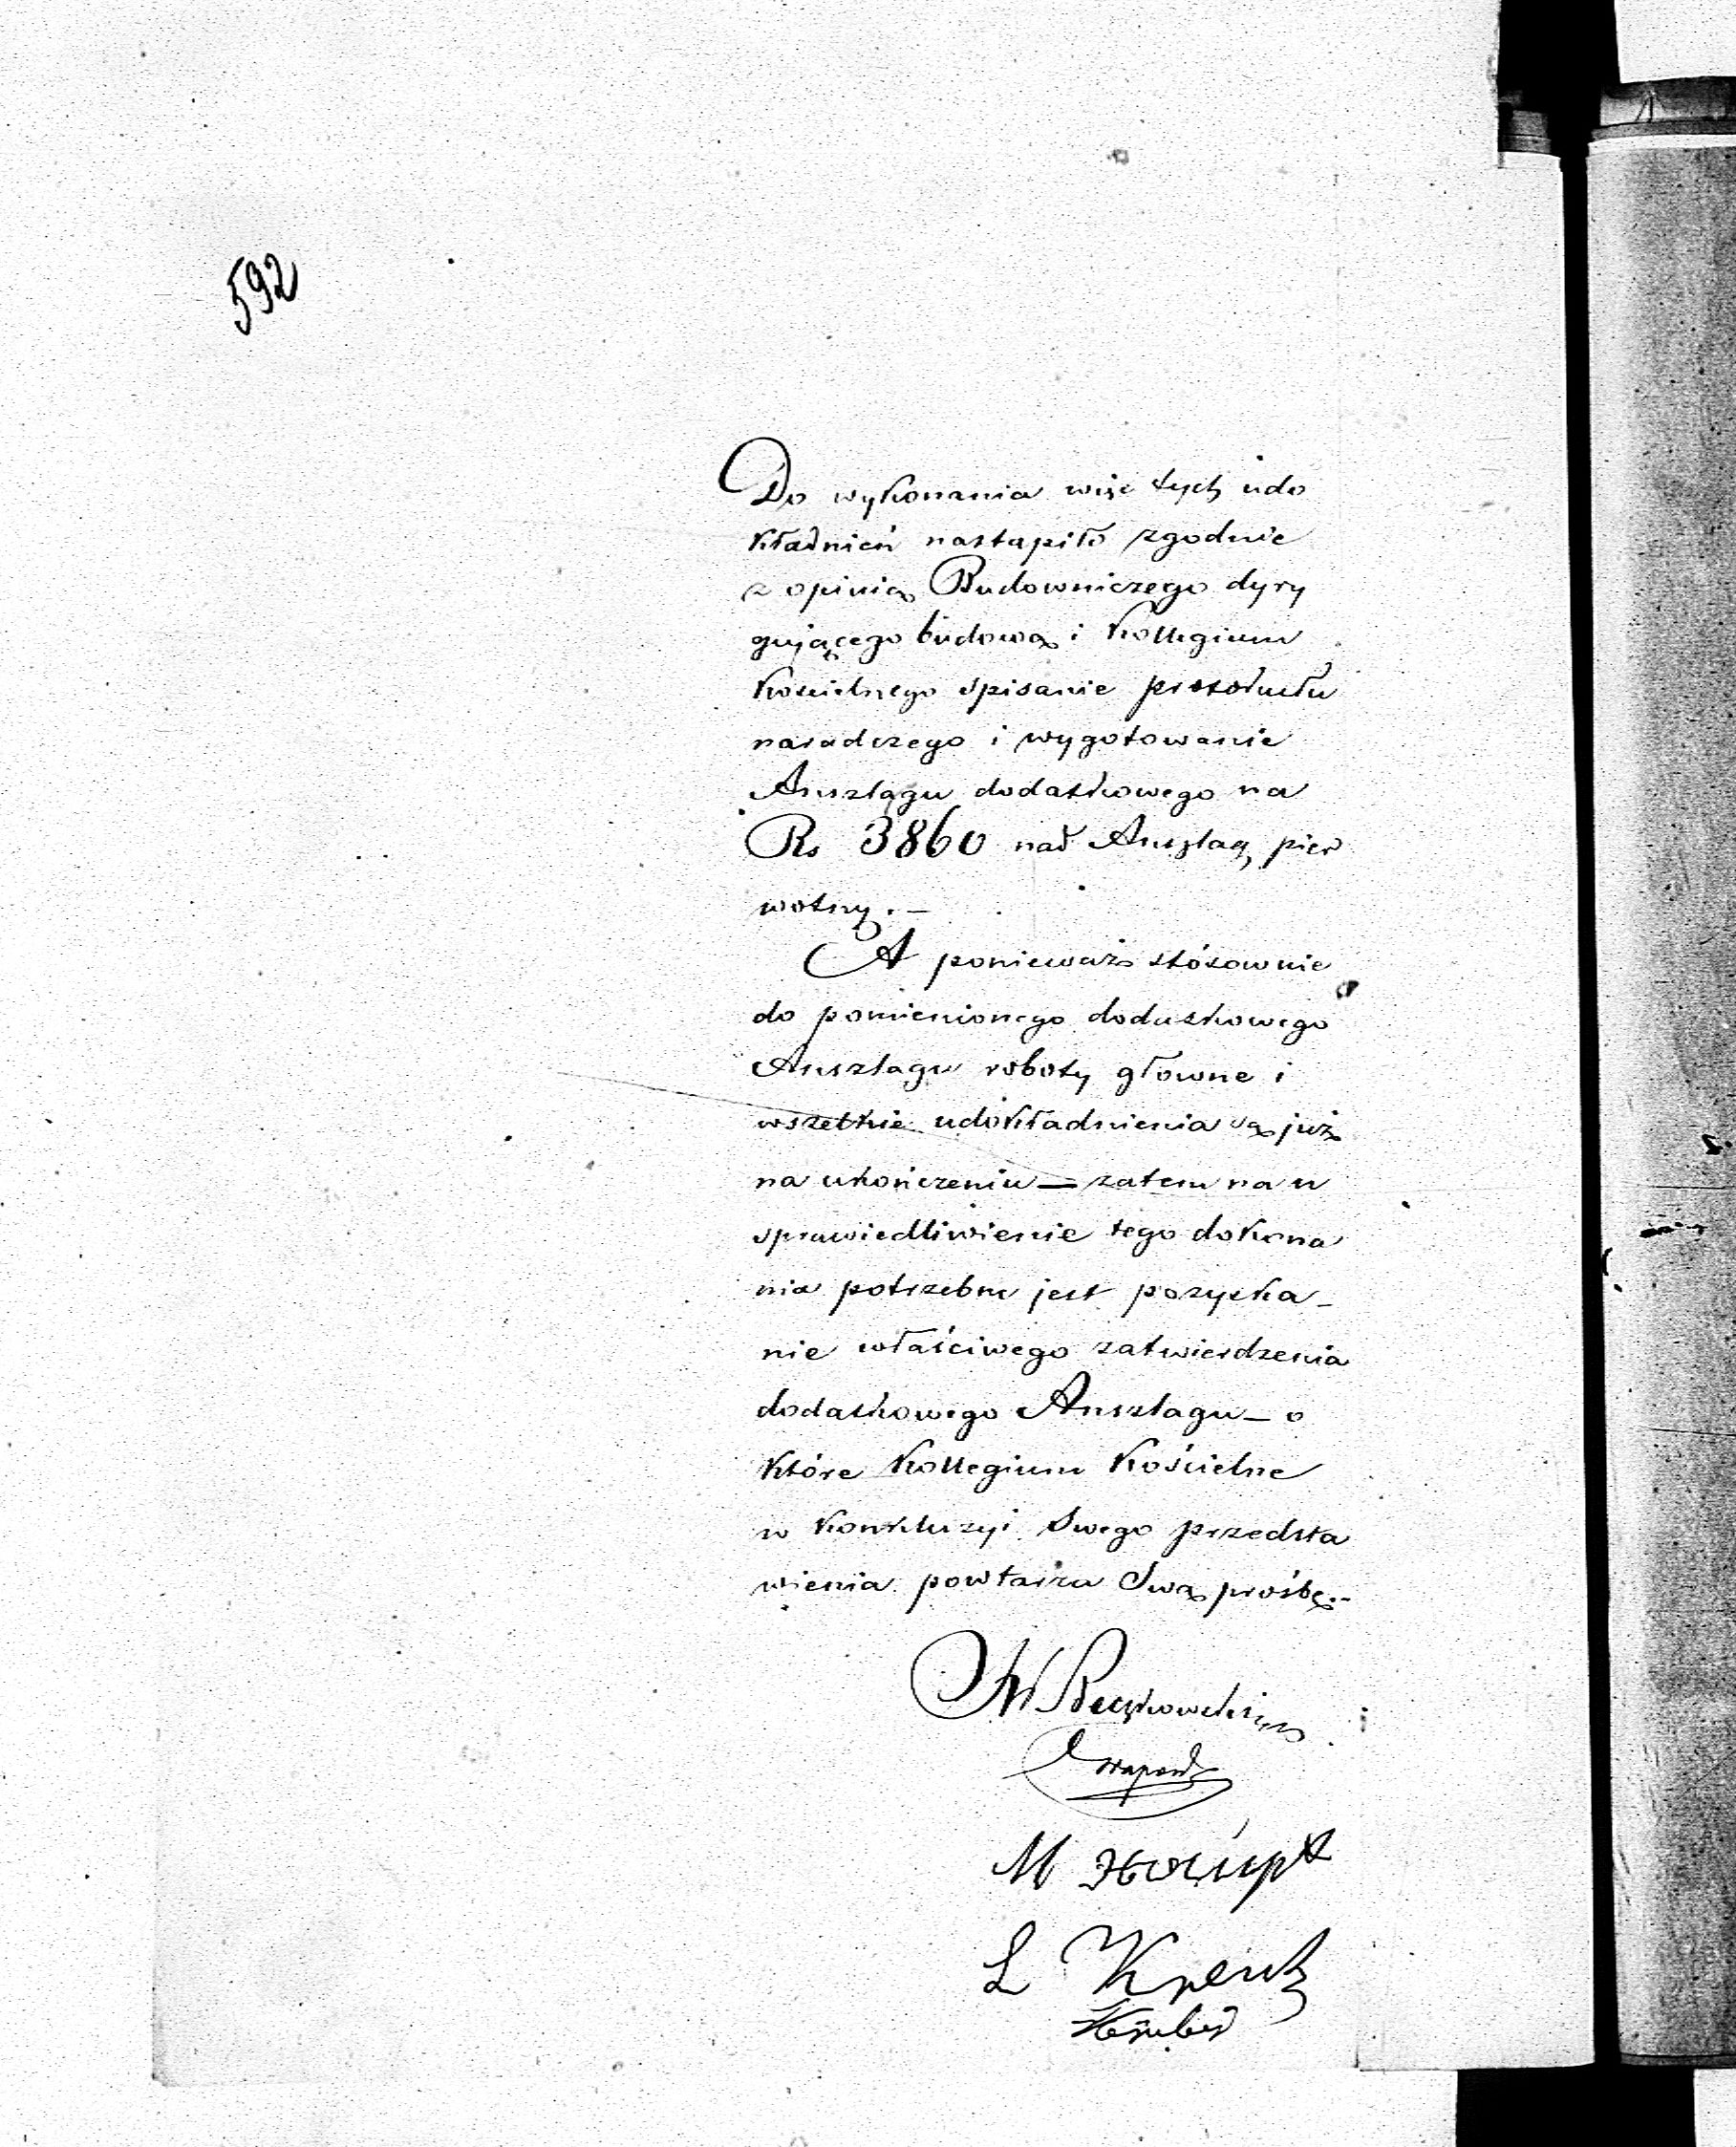 592
Do wykonania więc tych udo
kładnień nastąpiło zgodnie
z opinią Budowniczego dyry
gującego budową i Kollegium
Kościelnego spisanie protokułu
naradczego i wygotowanie
Anszlagu dodatkowego na
Rs 3860 nad Anszlag pier
wotny. —
A ponieważ stósownie
do pomienionego dodatkowego
Anszlagu roboty główne i
wszelkie udokładnienia są już
na ukończeniu — zatem na u
sprawiedliwienie tego dokona
nia potrzebne jest pozyska_
nie właściwego zatwierdzenia
dodatkowego Anszlagu — o
które Kollegium Kościelne
w konkluzyi Swego przedsta
wienia powtarza Swą prośbę.-
M Haupt
L